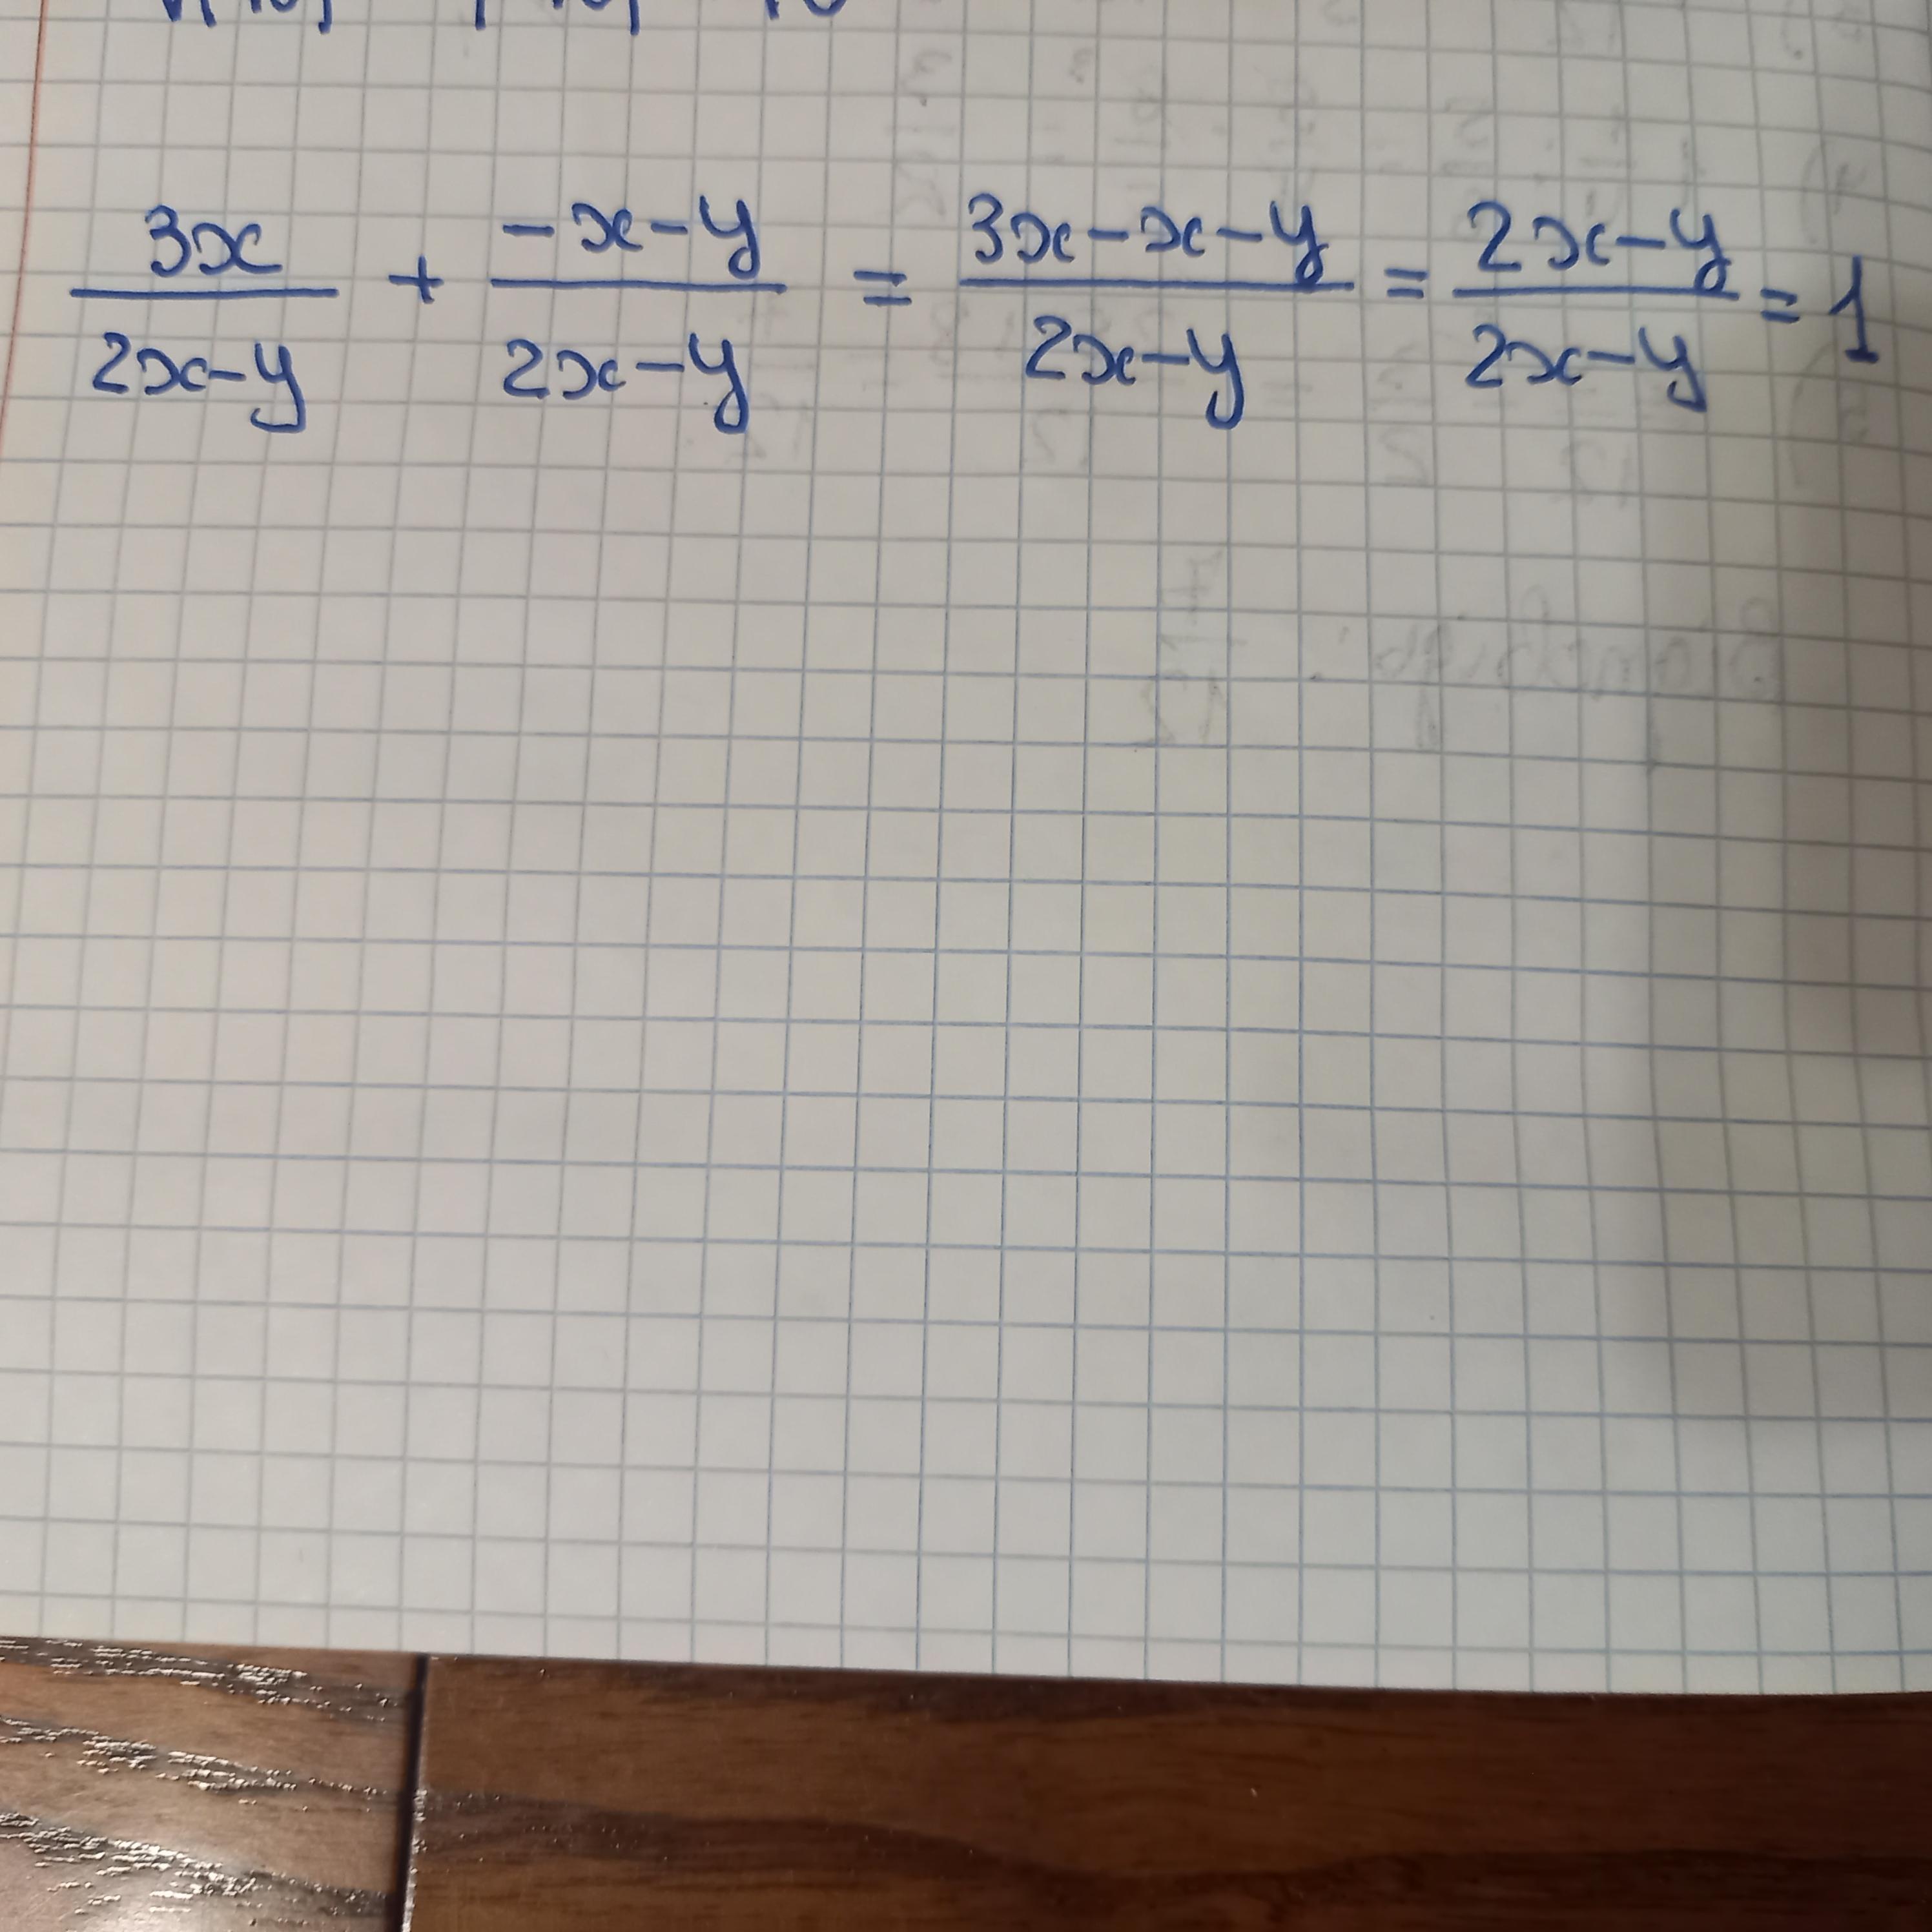 3x/(2x-y) + (-x-y)/(2x-y) = (3x-x-y)/(2x-y) = (2x-y)/(2x-y) = 1